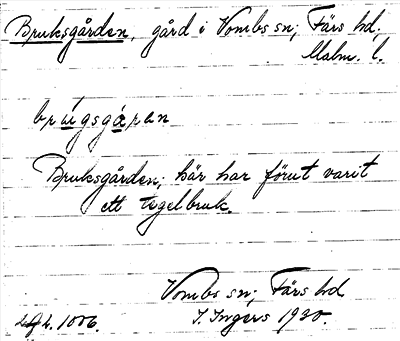 Bruksgården, gård i Vombs sn; Färs hd;
Malm. l.
Bruksgården; här har förut varit
ett tegelbruk.
Vombs sn; Färs hd.
I. Ingers 1930.
1006.